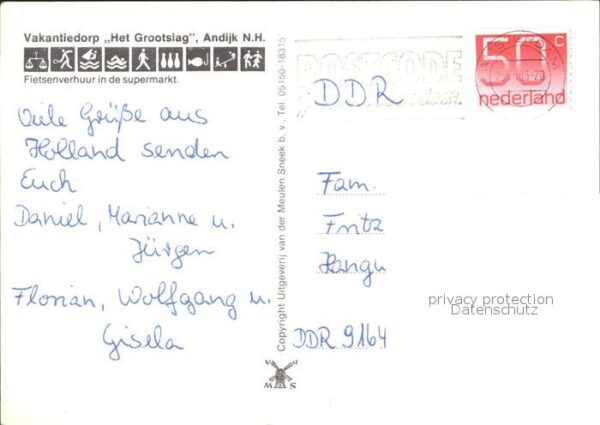 Vakantiedorp „Het Grootslag", Andijk N.H.
Fietsenverhuur in de supermarkt.
Viele Grüße aus
Holland senden
Euch
Daniel, Marianne u.
Jürgen
Florian, Wolfgang u.
Gisela
Copyright Uitgeverij van der Meulen Sneek b.v., Tel. 05150-18315*
v d
M S
POSTCODE
50 c
nederland
DDR
Fam.
Fritz
Hangu
DDR 9164
privacy protection
Datenschutz